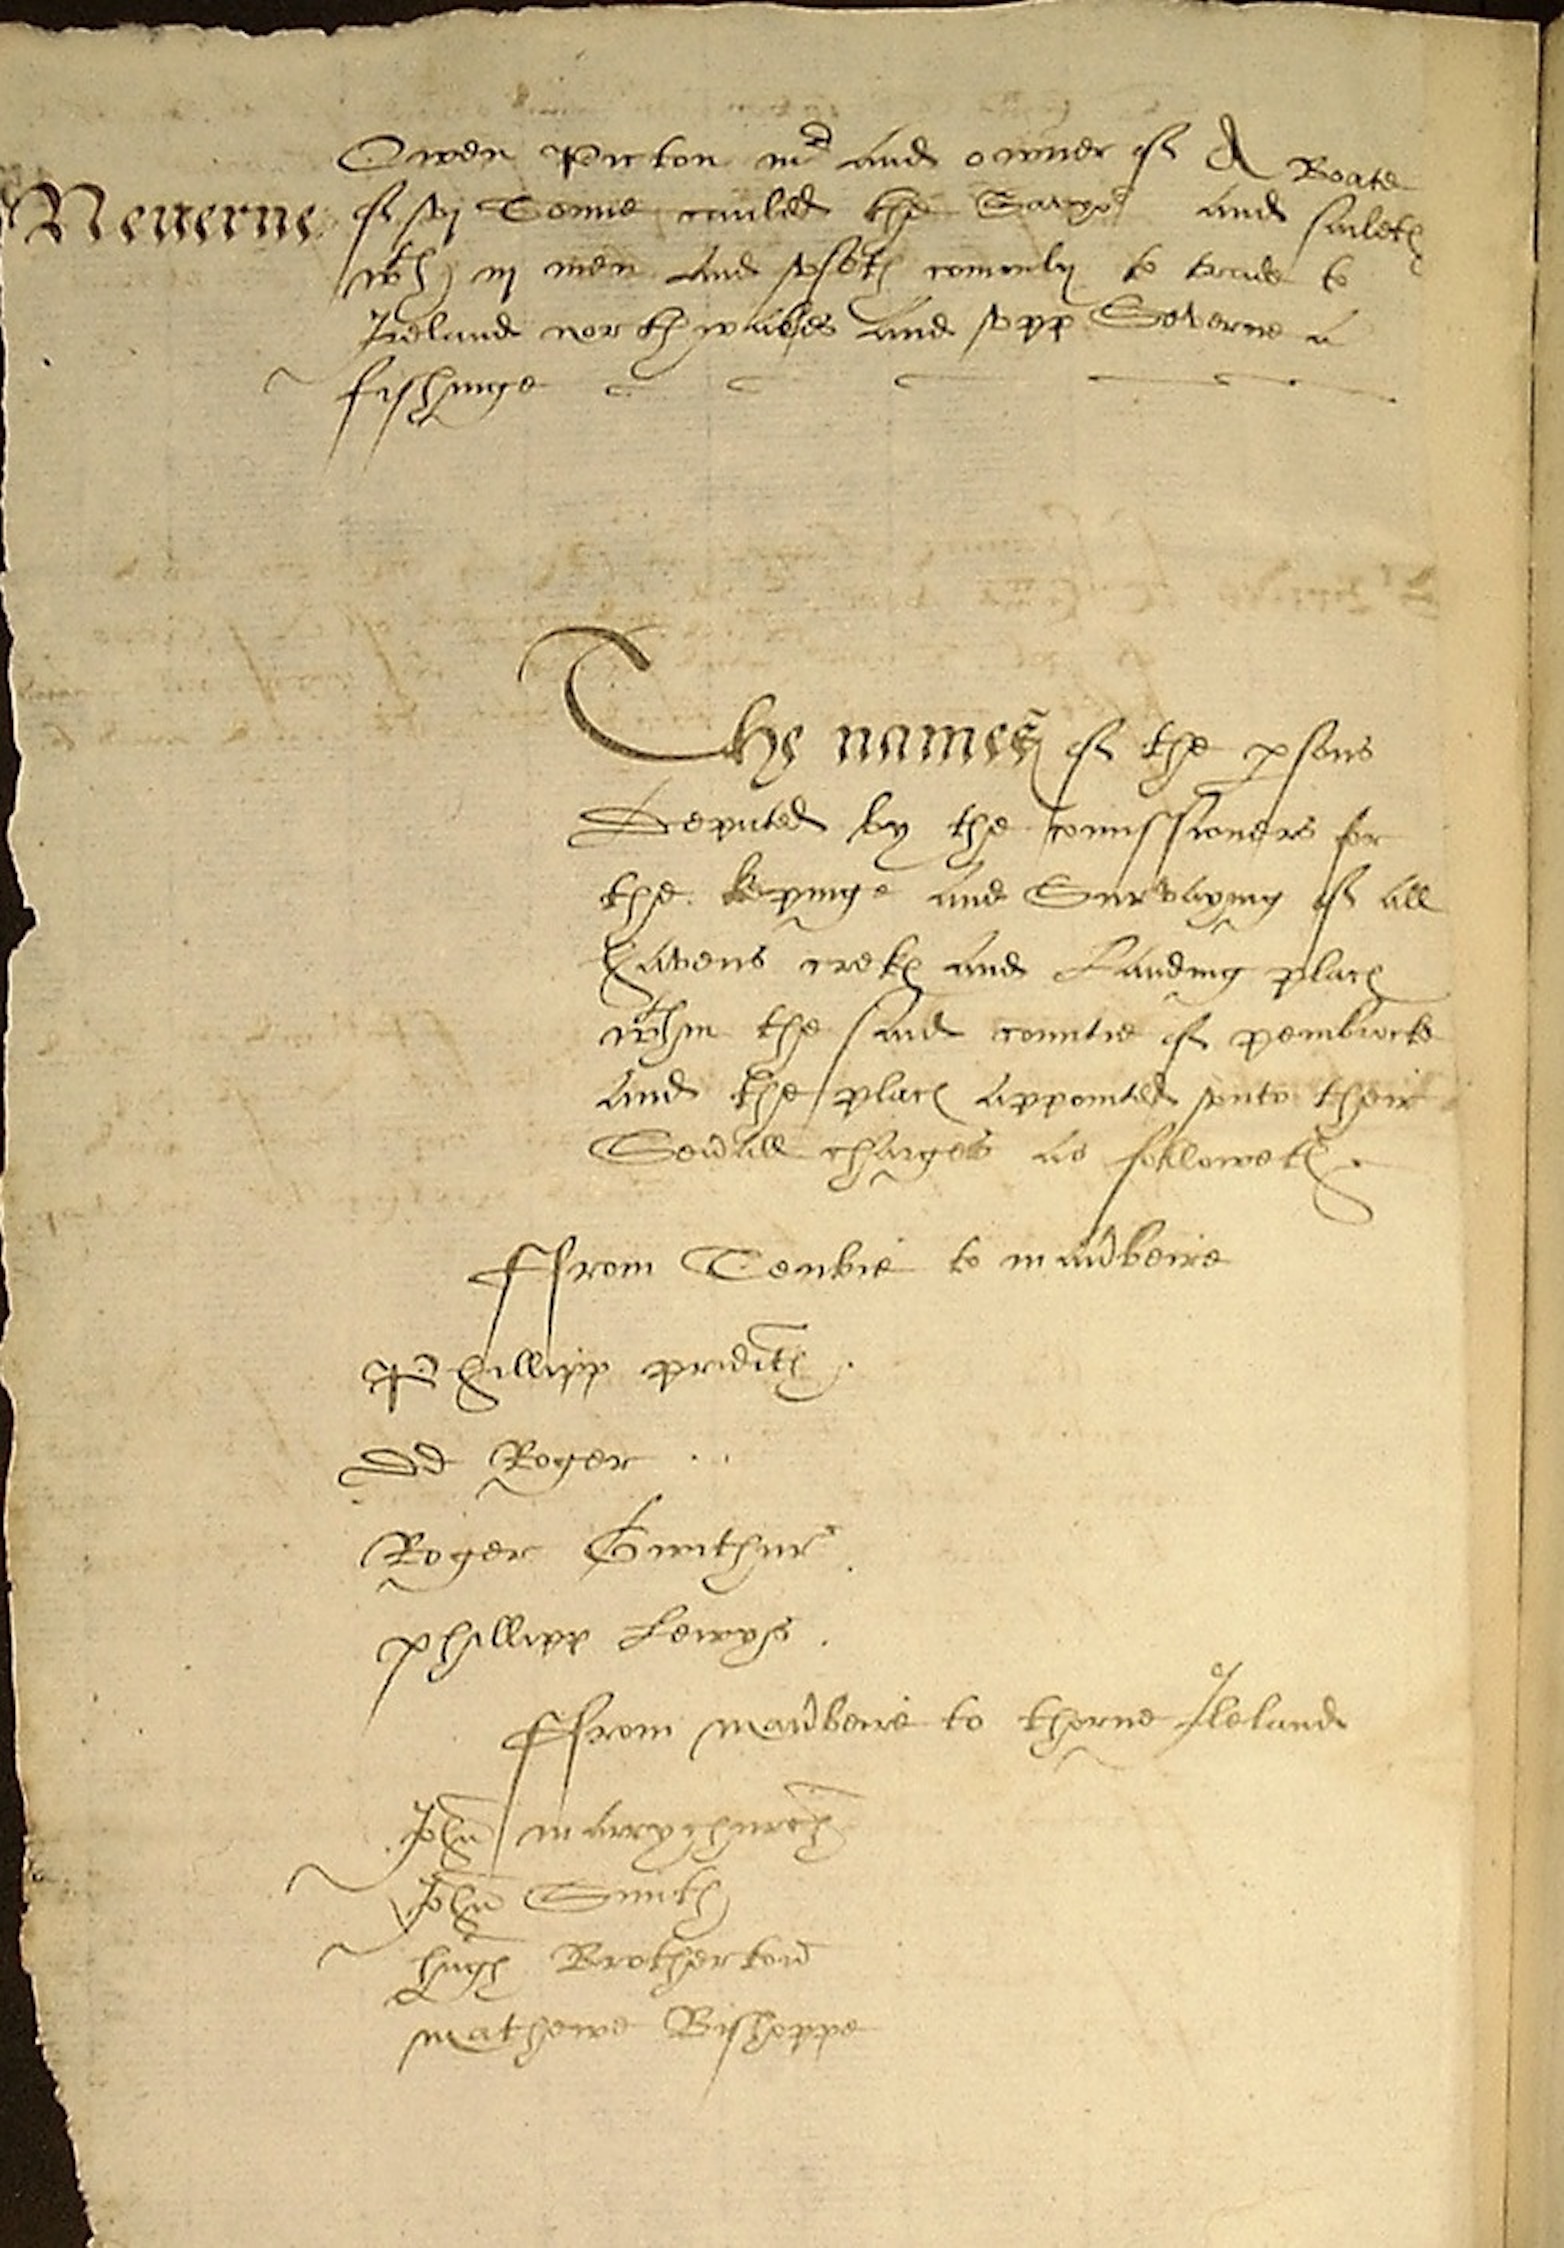 Owen Picton mr and owner of A Boate
Neverne of vj Tonne cauled the Savyor and saileth
wth iij men and vseth comonly to trade to
Ireland northwalles and vpp Severne a
fishinge
The names of the psons
Deputed by the comissioners for
the kepinge and Survaying of all
havens creks and Landing places
wthin the said countie of pembrock
and the places appointed vnto their
Sevall charges as followeth.
Ffrom Tenbie to manbeire
Phillipp pridith.
Dd Roger
Roger Gwither
Phillipp Lewys.
Ffrom manbeire to thorne Ileland
John marrychurch
John Smith
hugh Brotherton
mathewe Bishoppe